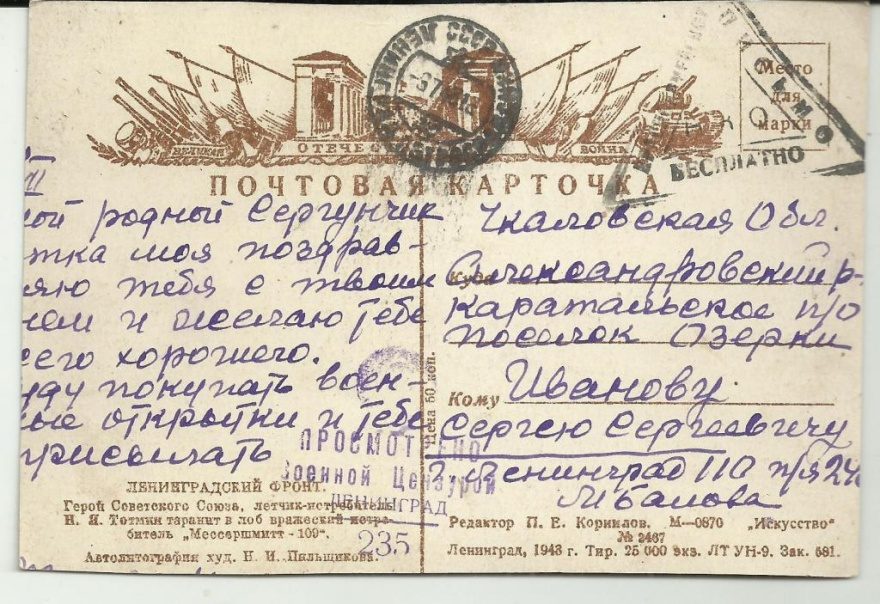 Место
для
марки
ПИСЬМО
БЕСПЛАТНО
ВЕЛИКАЯ ОТЕЧЕС ВОЙНА
ПОЧТОВАЯ КАРТОЧКА
VI
ой родный Сергунчик
тка моя поздрав-
яю тебя с твоим
нем и желаю тебе
сего хорошего.
уду покупать воен-
ые открытки и тебе
присылать
ПРОСМОТРЕНО
Военной Цензурой
ЛЕНИНГРАД
235
ЛЕНИНГРАДСКИЙ ФРОНТ.
Герой Советского Союза, летчик-истребитель
Н. Я. Тотмин таранит в лоб вражеский истре-
битель „Мессершмитт - 109".
Автолитография худ. Н. И. Пильщикова.
Цена 50 коп.
Чкаловская Обл.
Куда Александровский р-
Каратальское п/о
поселок Озерки
Кому Иванову
Сергею Сергеевичу
Ленинград 110 п/я 24
Редактор П. Е. Корнилов. М—0870 „Искусство"
№ 2467
Ленинград, 1943 г. Тир. 25 000 экз. ЛТ УН-9. Зак. 681.